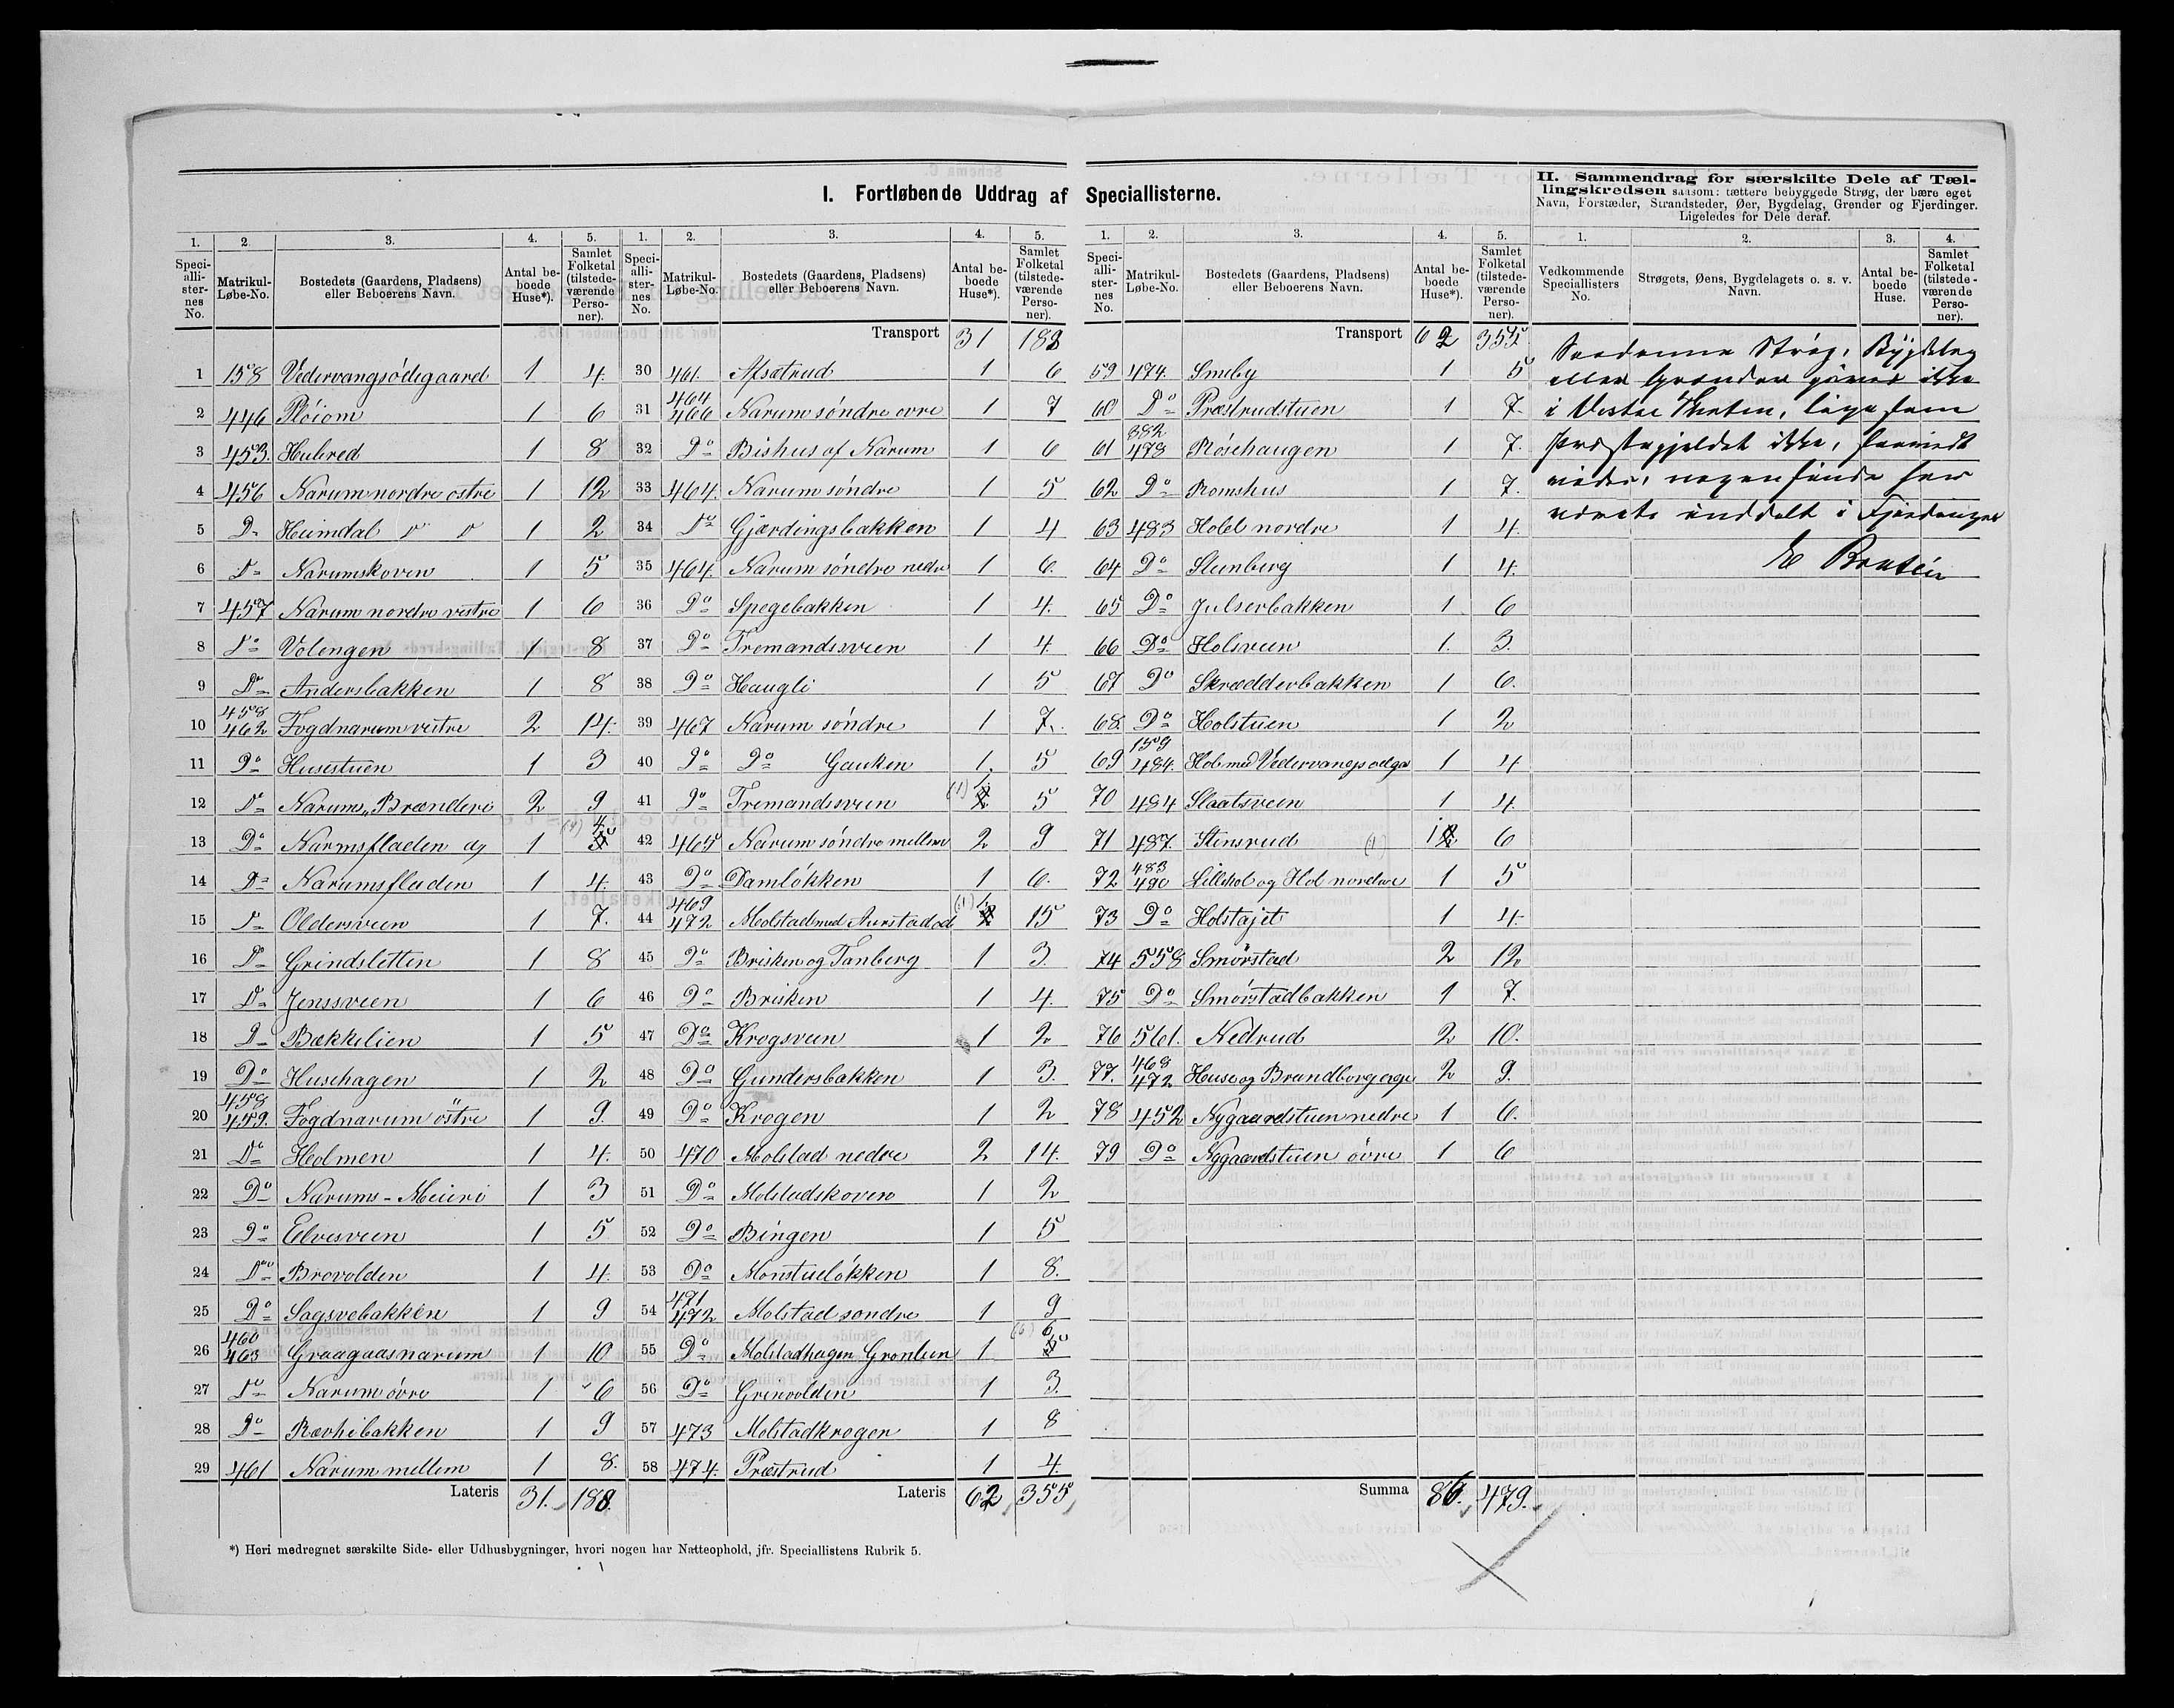 I. Fortløbende Uddrag af Speciallisterne.
II. Sammendrag for særskilte Dele af Tæl-
lingskredsen saasom: tættere bebyggede Strøg, der bære eget
Navn, Forstæder, Strandsteder, Øer, Bygdelag, Grender og Fjerdinger.
Ligeledes for Dele deraf.
1. 2. 3. 4. 5.
Speciallisternes No. Matrikul-Løbe-No. Bostedets (Gaardens, Pladsens) eller Beboerens Navn. Antal beboede Huse*). Samlet Folketal (tilstedeværende Personer).
1 158 Vedervangsødegaard 1 4.
2 446 Pløiom 1 6
3 453. Hulred 1 8
4 456 Narum nordre østre 1 12
5 D- Heimdal " " 1 2
6 D- Narumskoven 1 5
7 457 Narum nordre vestre 1 6
8 Do Volengen 1 8
9 Do Andersbakken 1 8
10 458 462 Fogdnarum vestre 2 14.
11 Do Husestuen 1 3
12 Do Narums„ Brænderi 2 9
13 Do Narmsfladen og 1 (4) 4
14 Do Narumsfladen 1 4.
15 D- Oldersveen 1 7.
16 Do Grindsletten 1 8
17 D- Jenssveen 1 6
18 D- Bækkelien 1 5
19 Do Husehagen 1 2
20 458 459. Fogdnarum östre 1 9.
21 Do Holmen 1 4.
22 Do Narums-Meieri 1 3
23 Do Elvesveen 1 5
24 Do Brovolden 1 4.
25 Do Sagsvebakken 1 9
26 460 463 Graagaasnarum 1 10
27 Do Narum øvre 1 6
28 Do Rævhibakken 1 9
29 461 Narum mellem 1 8.
Lateris 31. 188.
1. 2. 3. 4. 5.
Speciallisternes No. Matrikul-Løbe-No. Bostedets (Gaardens, Pladsens) eller Beboerens Navn. Antal beboede Huse*). Samlet Folketal (tilstedeværende Personer).
Transport 31 188
30 461. Afsætrud 1 6
31 464 466 Narum søndre øvre 1 7
32 Do Bishus af Narum 1 6
33 464. Narum søndre 1 5
34 Do Gjærdingsbakken 1 4
35 464. Narum søndre nedre 1 6.
36 Do Spegebakken 1 4.
37 Do Tremandssveen 1 4.
38 Do Haugli 1 5
39 467 Narum søndre 1 7.
40 Do Do Gauken 1. 5
41 Do Tremandsveen (1) 1. 5
42 465 Narum søndre mellem 2 9
43 Do Damløkken 1 6.
44 469 472 Molstad med Aurstadød (1) 1. 15
45 Do Brisken og Tanberg 1 3.
46 Do Brisken 1 4.
47 Do Krogsveen 1 2
48 Do Gundersbakken 1 3.
49 Do Krogen 1 2
50 470 Molstad nedre 2 14.
51 Do Molstadskoven 1 2
52 Do Bingen 1 5
53 Do Monstueløkken 1 8.
54 471 472 Molstad søndre 1 9
55 Do Molstadhagen Gronlien 1 (6) 6
56 Do Grinvolden 1 3.
57 473 Molstadkrogen 1 8
58 474. Præstrud 1 4.
Lateris 62 355
1. 2. 3. 4. 5.
Speciallisternes No. Matrikul-Løbe-No. Bostedets (Gaardens, Pladsens) eller Beboerens Navn. Antal beboede Huse*). Samlet Folketal (tilstedeværende Personer).
Transport 62 355
59 474. Smeby 1 5
60 Do Præstrudstuen 1 7.
61 382 478 Røsehaugen 1 7.
62 Do Romshus 1 7.
63 483 Holel nordre 1 4.
64 Do Stenberg 1 4.
65 Do Julserbakken 1 6
66 Do Holsveen 1. 3.
67 Do Skrædderbakken 1 6.
68. Do Holstuen 1 2
69 159 484. Hol med Vedervangsødga 1 4
70 484 Slaatsveen 1 4.
71 487. Stensrud (1) 1 6
72 483 490 Lillehol og Hol nordre 1 5
73 Do Holstajet 1 4.
74 558 Smørstad 2 12
75 Do Smørstadbakken 1 7.
76 561. Nedrud 2 10.
77. 468 472 Huse og Brandborgenge 2 9.
78 452 Nygaardstuen nedre 1 6.
79 Do Nygaardstuen øvre 1 6
Summa 86. 479.
1. 2. 3. 4.
Vedkommende Speciallisters No. Strøgets, Øens, Bygdelagets o. s. v. Navn. Antal beboede Huse. Samlet Folketal (tilstedeværende Personer).
Saadanne Strøg, Bygdelag
eller Grender gives ikke
i Vestre Thoten, ligesom
Præstegjeldet ikke, saavidt
vides, nogensinde har
været inddelt i Fjerdinger
E Braten
*) Heri medregnet særskilte Side- eller Udhusbygninger, hvori nogen har Natteophold, jfr. Speciallistens Rubrik 5.